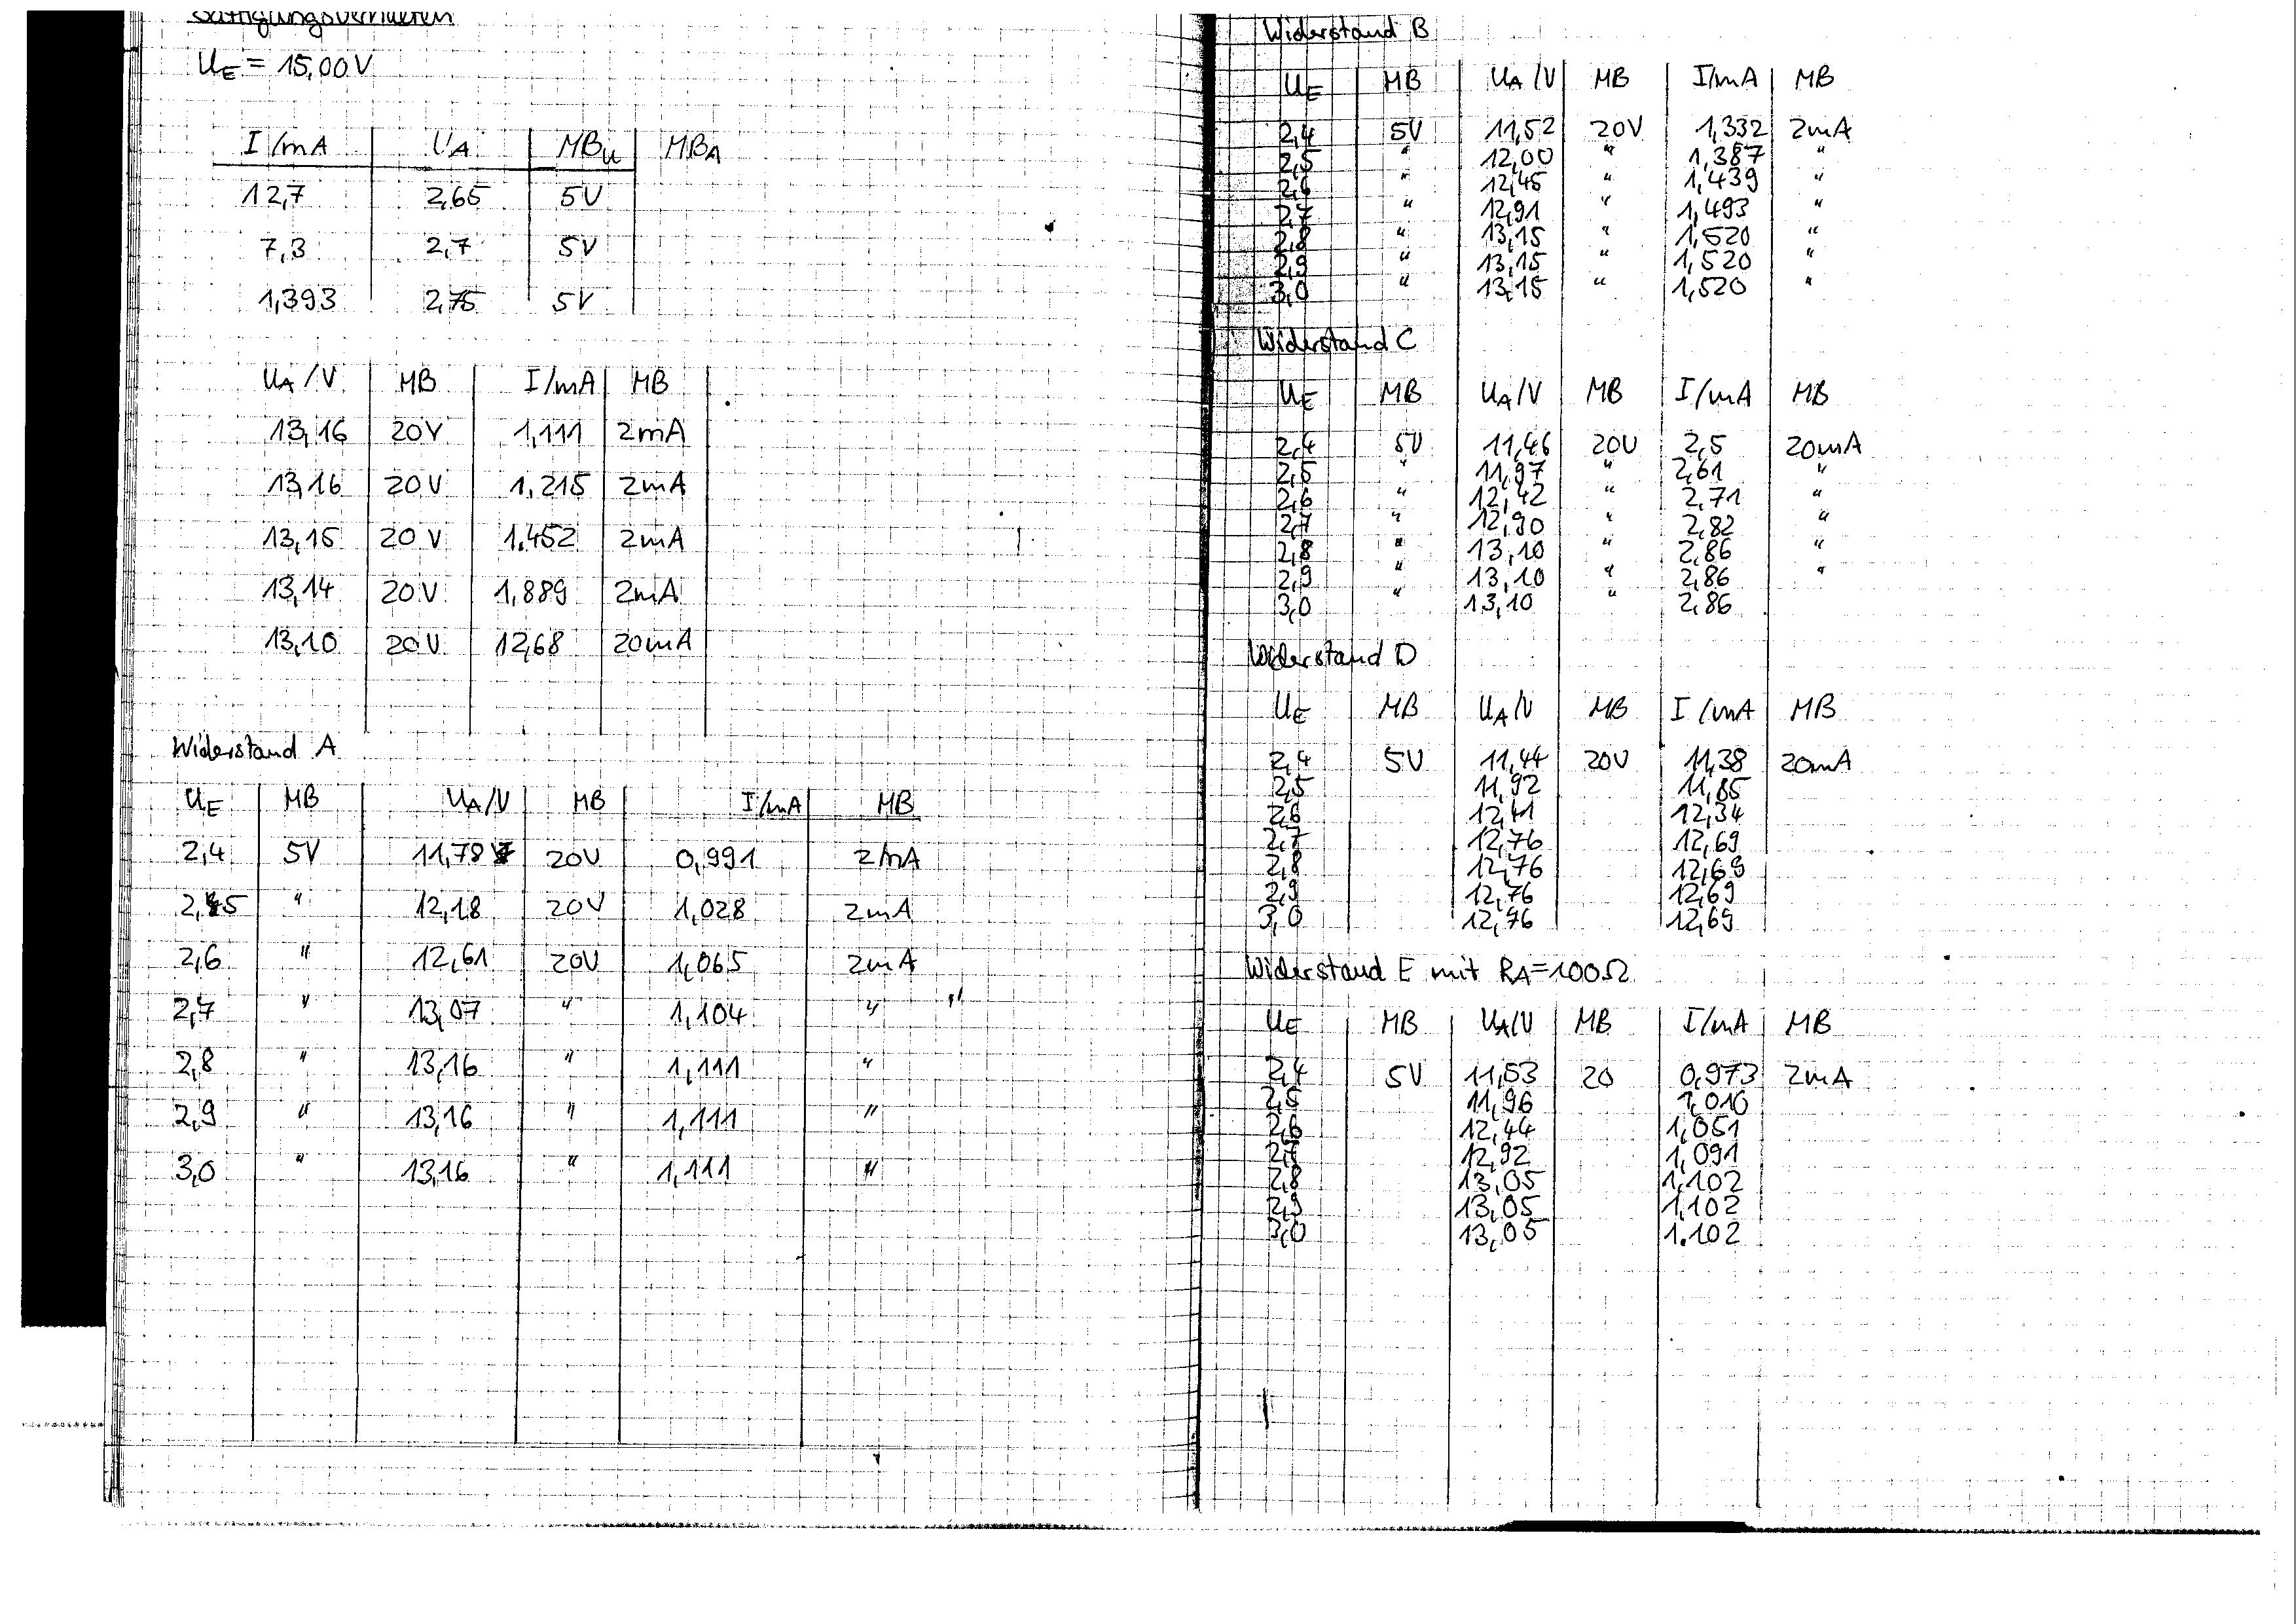 Sättigungsverhalten
UE = 15,00V
I/mA UA MBU MBA
12,7 2,65 5V
7,3 2,7 5V
1,393 2,75 5V
UA/V MB I/mA MB
13,16 20V 1,111 2mA
13,16 20V 1,215 2mA
13,15 20V 1.452 2mA
13,14 20V 1,889 2mA
13,10 20V 12,68 20mA
Widerstand A
UE MB UA/V MB I/mA MB
2,4 5V 11,78 20V 0,991 2mA
2,5 " 12,18 20V 1,028 2mA
2,6 " 12,61 20V 1,065 2mA
2,7 " 13,07 " 1,104 " "
2,8 " 13,16 " 1,111 "
2,9 " 13,16 " 1,111 "
3,0 " 13,16 " 1,111 "
Widerstand B
UE MB UA/V MB I/mA MB
2,4 5V 11,52 20V 1,332 2mA
2,5 " 12,00 " 1,387 "
2,6 " 12,45 " 1,439 "
2,7 " 12,91 " 1,493 "
2,8 " 13,15 " 1,520 "
2,9 " 13,15 " 1,520 "
3,0 " 13,15 " 1,520 "
Widerstand C
UE MB UA/V MB I/mA MB
2,4 5V 11,46 20V 2,5 20mA
2,5 " 11,97 " 2,61 "
2,6 " 12,42 " 2,71 "
2,7 " 12,90 " 2,82 "
2,8 " 13,10 " 2,86 "
2,9 " 13,10 " 2,86 "
3,0 " 13,10 " 2,86
Widerstand D
UE MB UA/V MB I/mA MB
2,4 5V 11,44 20V 11,38 20mA
2,5 11,92 11,85
2,6 12,41 12,34
2,7 12,76 12,69
2,8 12,76 12,69
2,9 12,76 12,69
3,0 12,76 12,69
Widerstand E mit RA=100Ω
UE MB UA/V MB I/mA MB
2,4 5V 11,53 20 0,973 2mA
2,5 11,96 1,010
2,6 12,44 1,051
2,7 12,92 1,091
2,8 13,05 1,102
2,9 13,05 1,102
3,0 13,05 1.102